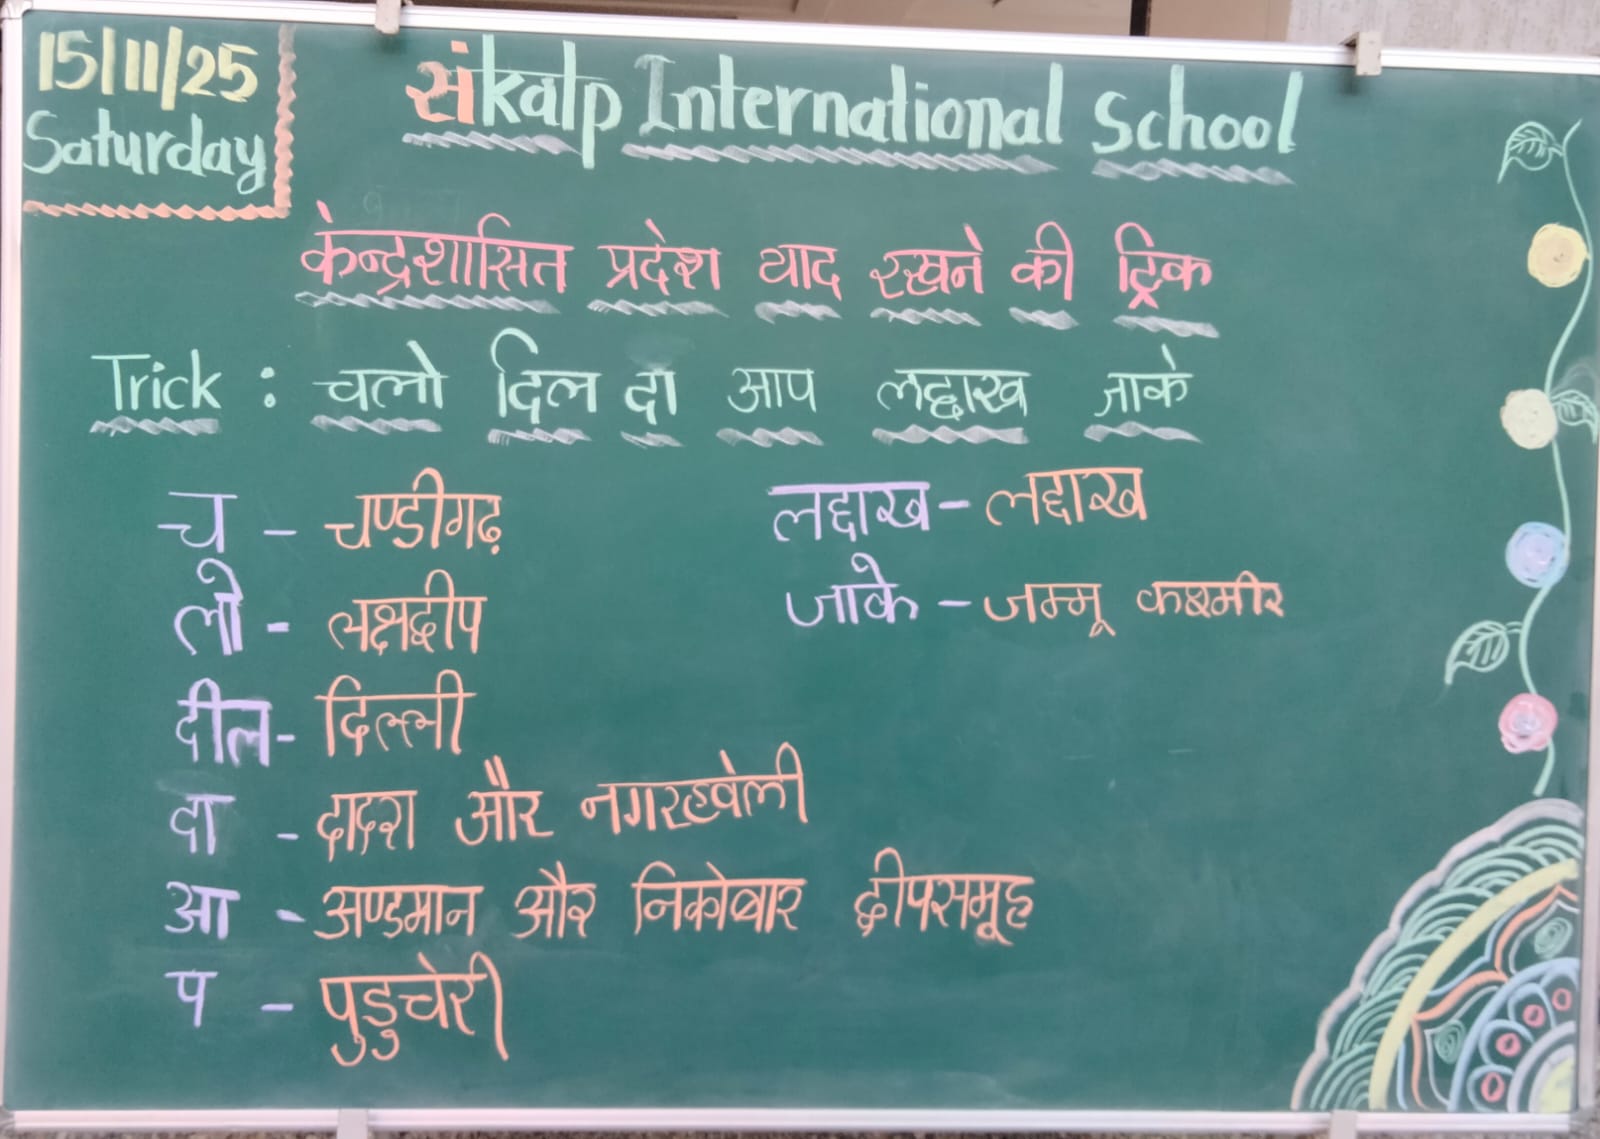 15/11/25
Saturday
संkalp International School
केन्द्रशासित प्रदेश याद रखने की ट्रिक
Trick : चलो दिल दा आप लद्दाख जाके
च - चण्डीगढ़
लो - लक्षद्वीप
दील - दिल्ली
दा - दादरा और नगरहवेली
आ - अण्डमान और निकोबार द्वीपसमूह
प - पुडुचेरी
लद्दाख - लद्दाख
जाके - जम्मू कश्मीर